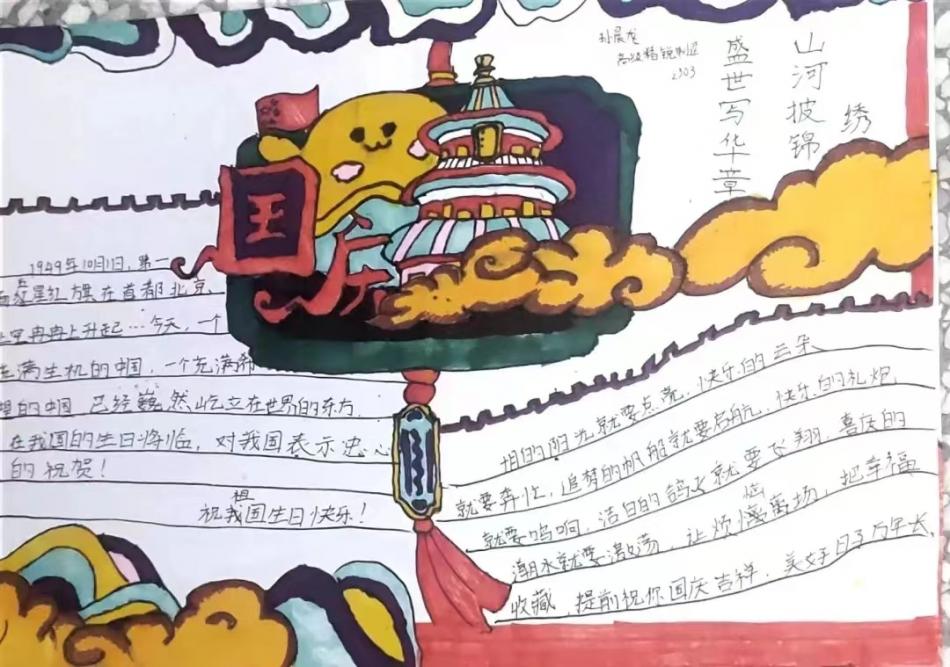 国庆
山河披锦绣
盛世写华章
2303
1949年10月1日，第一
五星红旗在首都北京
冉冉上升起…今天，一个
满生机的中国，一个充满希
的中国 已经巍然屹立在世界的东方
在我国的生日将临，对我国表示忠心
的祝贺！
祝我祖国生日快乐！
的阳光就要点亮，快乐的云朵
就要奔忙，追梦的帆船就要启航，快乐的礼炮
就要鸣响，洁白的鸽子就要飞翔，喜庆的
潮水就要激荡，让烦恼离场，把幸福
收藏，提前祝你国庆吉祥，美好日子万年长